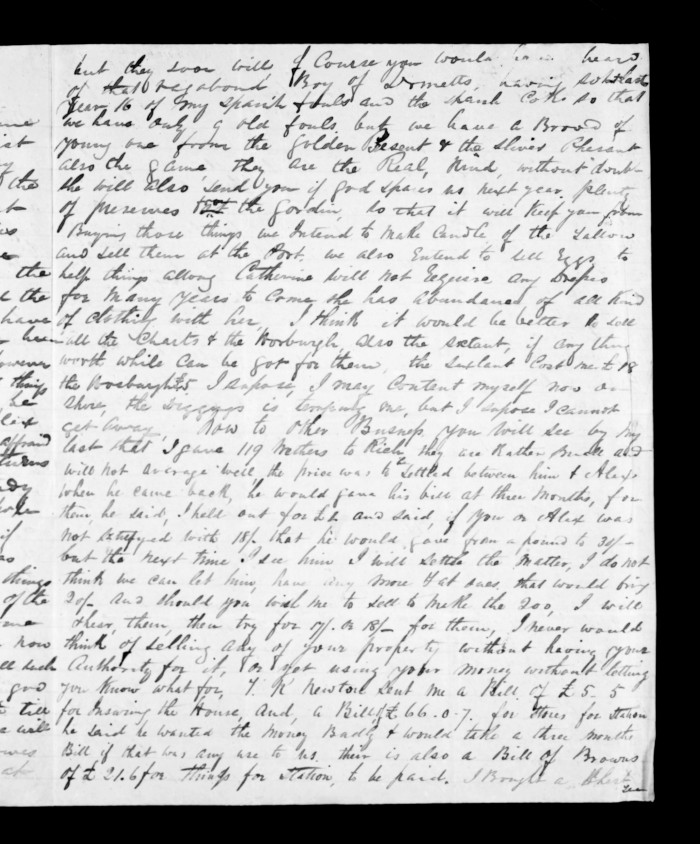 but they soon will of Course you would have heard
of that vagabond Boy of Dornetts, having last
year 16 of my Spanish fouls and the Cock so that
we have only 9 old fouls but we have a Brood of
young one from the Golden Pesent & the Sliver Plesent
also the game they are the Real, Kind, without doubt
She will also send you if god spares us next year plenty
of preserves the Gordin, so that it will Keep you from
Buying those things, we Intend to make Candle of the Tallow
and sell them at the Port, we also Entend to sell Eggs, to
help things allong Catherine will not require any Dress
for many years to Come, she has abundance of all Kind
of clothing with her, I think it would be better to sell
all the Charts & the Horburgh, also the Sextant, if any thing
worth while can be got for them, the Sextant Cost me £ 18
the I supose, I may Content myself now on
Shore, the Diggings is tempting me, but I supose I cannot
get away, Now to other Business, you will see by my
last that I gave 119 Wethers to Rich they are Rather Small and
will not average well, the price was to be settled between him & Alexr
when he came back, he would gave his bill at three Months, for
them, he said, I held out for and said, if you or Alex was
not satisfyed with 18/- that he would gave from a pound to
but the next time I see him I will settle the matter, I do not
think we can let him, have any more that would bring
20/- And should you wish me to sell to make the 200, I will
Shear, them, then try for 17/- or 18/- for them, I never would
think of selling any of your property without having your
Authority for it, or yet using your money without letting
you Know what for, Newton sent me a Bill of £ 5 . 5
for Insuring the House, And, a Bill of £ 66 . 0 - 7. for Stores for Station
he said he wanted the Money Badly & would take a three months
Bill if that was any use to us. their is also a Bill of Browns
of £ 21.6 for things for Station, to be paid. I Bought a